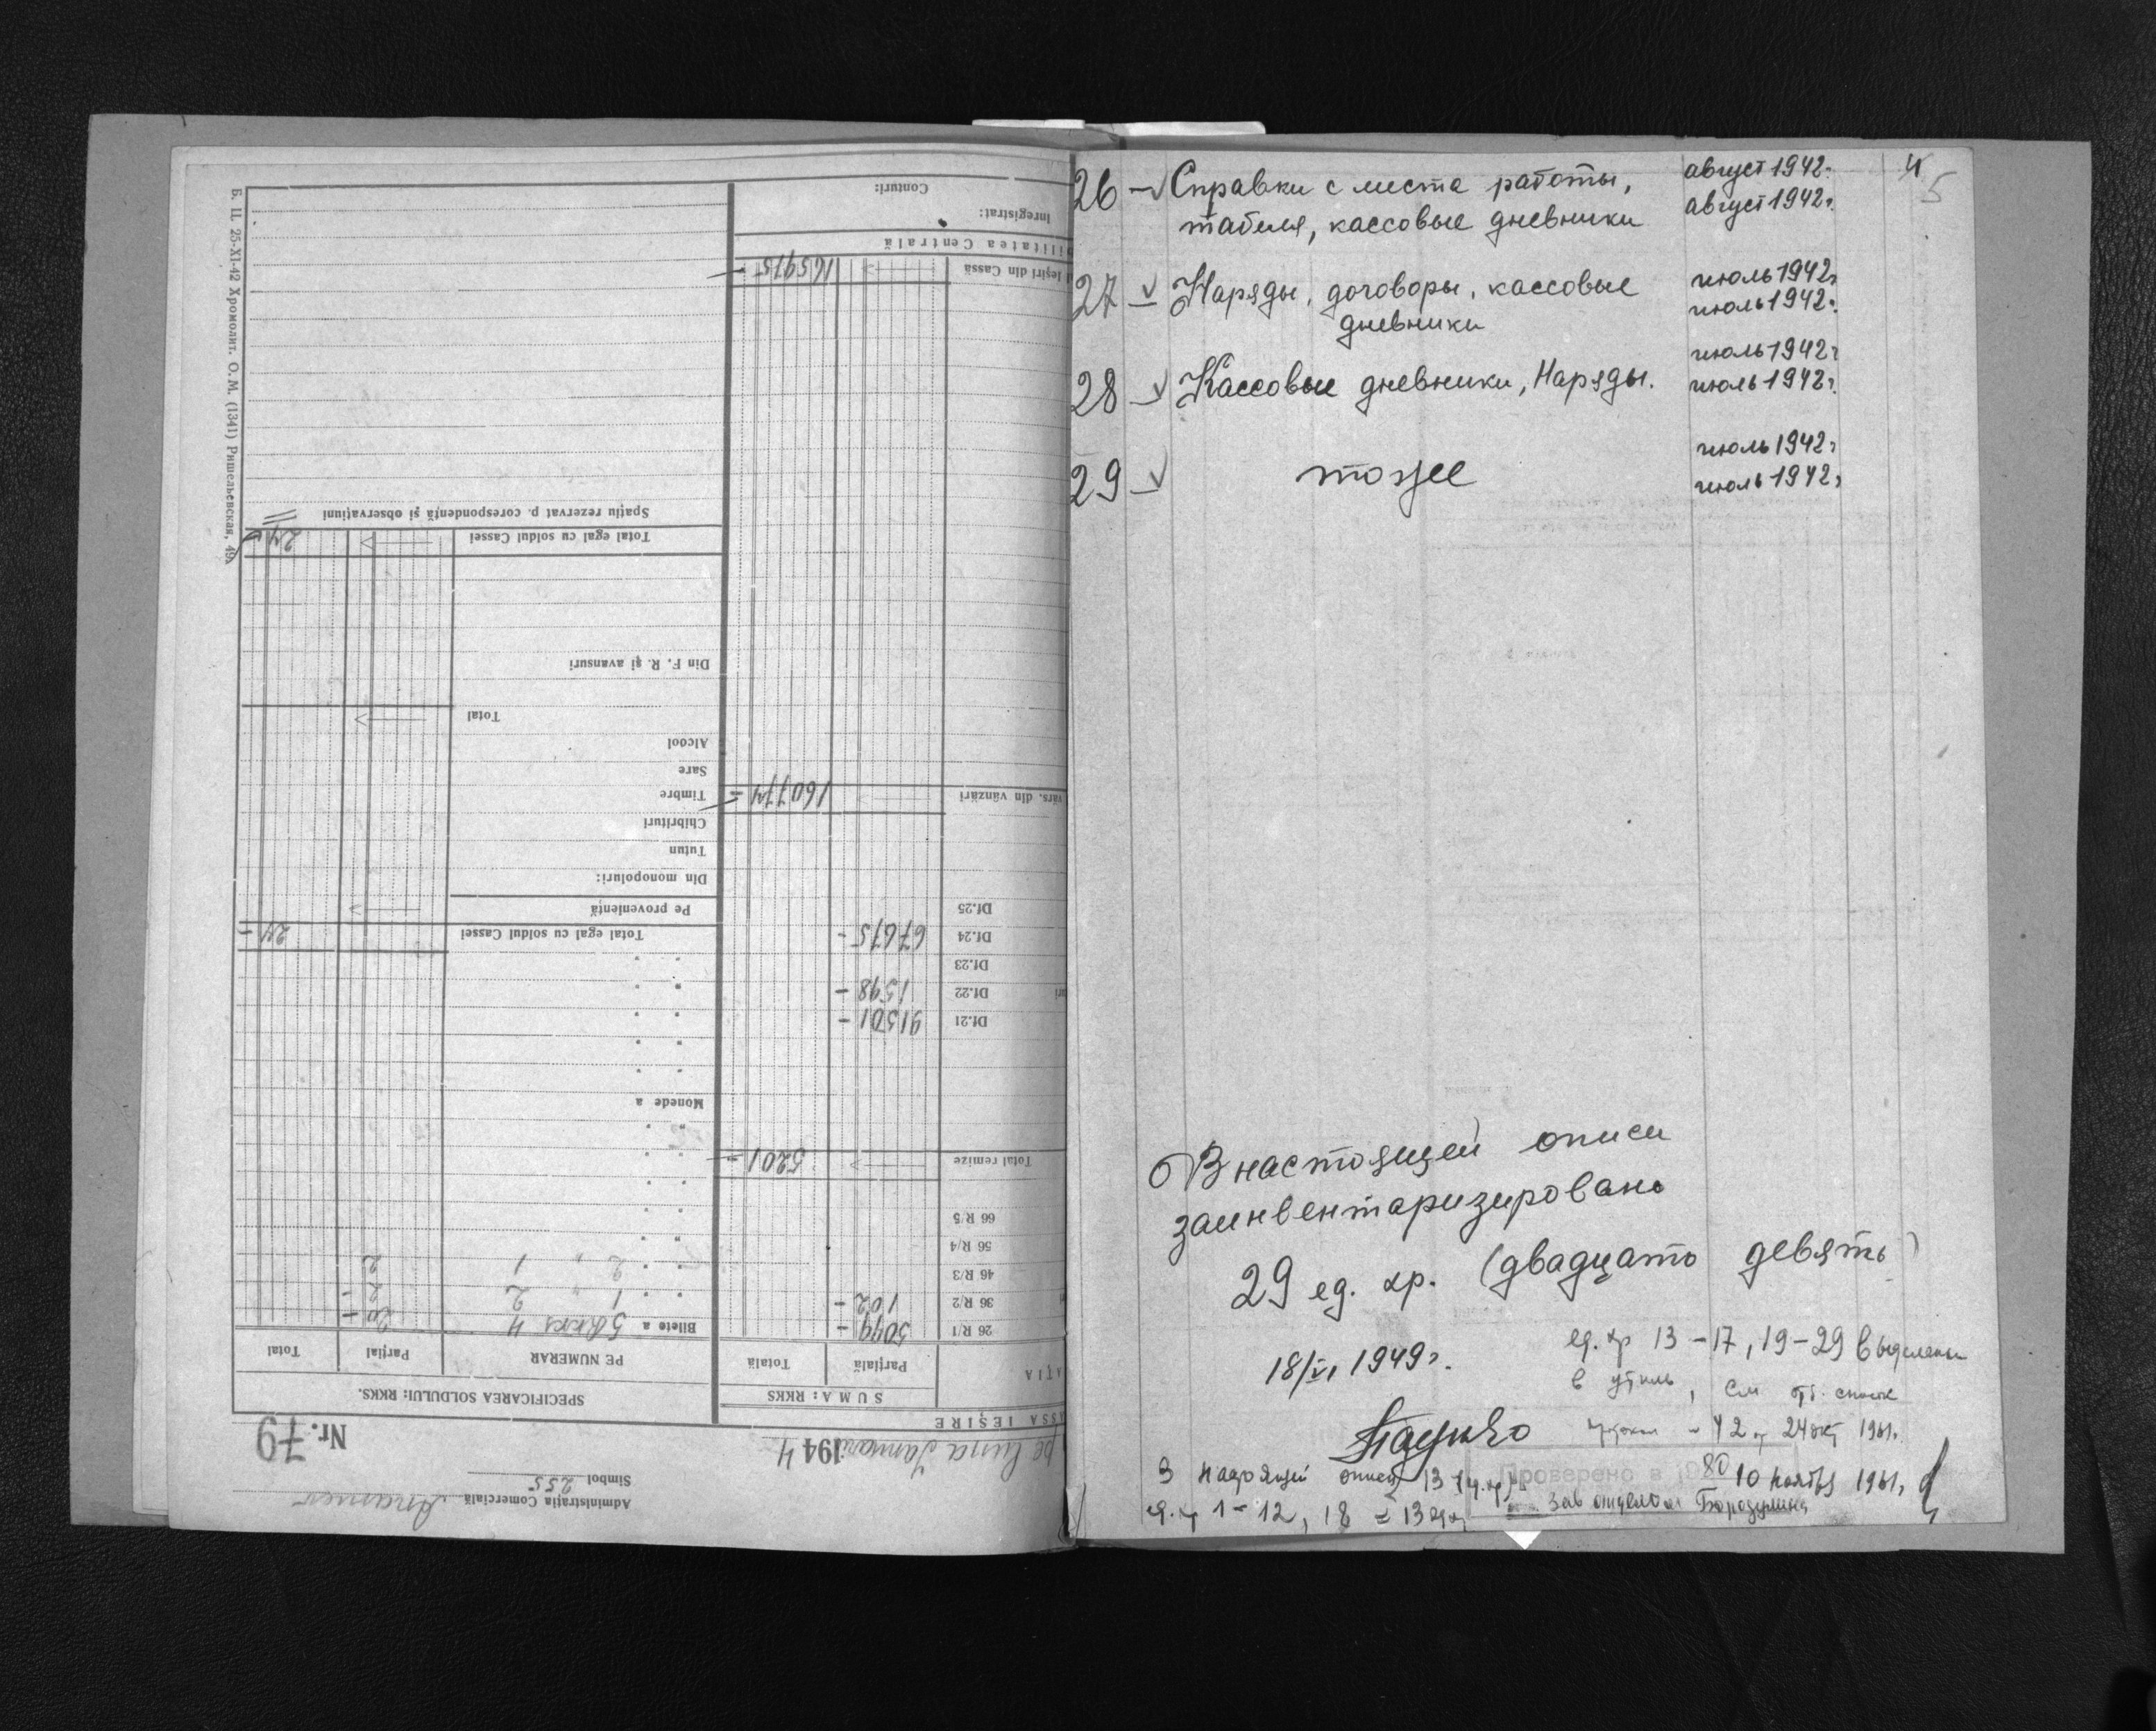 Б. Ц. 25-XI-42 Хромолит. О. М. (1341) Ришельевская, 49.
Administrația Comercială
Simbol 255
Nr. 79
pe luna Januarie 1944
SSA IEȘIRE
SPECIFICAREA SOLDULUI: RKKS.
SUMA: RKKS
PE NUMERAR
Parțial
Total
Parțială
Totală
Bilete a 5 RKKS 4 20 -
1 " 2 2 -
2 " 1 2
Monede a
Total egal cu soldul Cassei 24 -
Pe proveniență
Din monopoluri:
Tutun
Chibrituri
Timbre
Sare
Alcool
Total
Din F. R. și avansuri
Total egal cu soldul Cassei 24 -
Spațiu rezervat p. corespondență și observațiuni
26 R/1 5099 -
36 R/2 102 -
46 R/3
56 R/4
66 R/5
Total remize 5201 -
Df.21 91501 -
Df.22 1598 -
Df.23
Df.24 67675 -
Df.25
vărs. din vânzări 160774 -
ieșiri din Cassă 165975 -
ilitatea Centrală
Inregistrat:
Conturi:
4 5
26 – v Справки с места работы, август 1942г.
табеля, кассовые дневники август 1942г.
27 – v Наряды, договоры, кассовые июль 1942г
дневники июль 1942г.
28 – v Кассовые дневники, Наряды. июль 1942г
июль 1942г.
29 – v тоже июль 1942г
июль 1942г
В настоящей описи
заинвентаризировано
29 ед. хр. (двадцать девять)
18/VI 1949г.
ед. хр 13 – 17, 19 – 29 выделены
в утиль, см
24 окт 1961г.
В настоящей описи 13
1 – 12, 18 = 13
Проверено в 80
10 ноября 1961г.
Зав отделом Бородулина